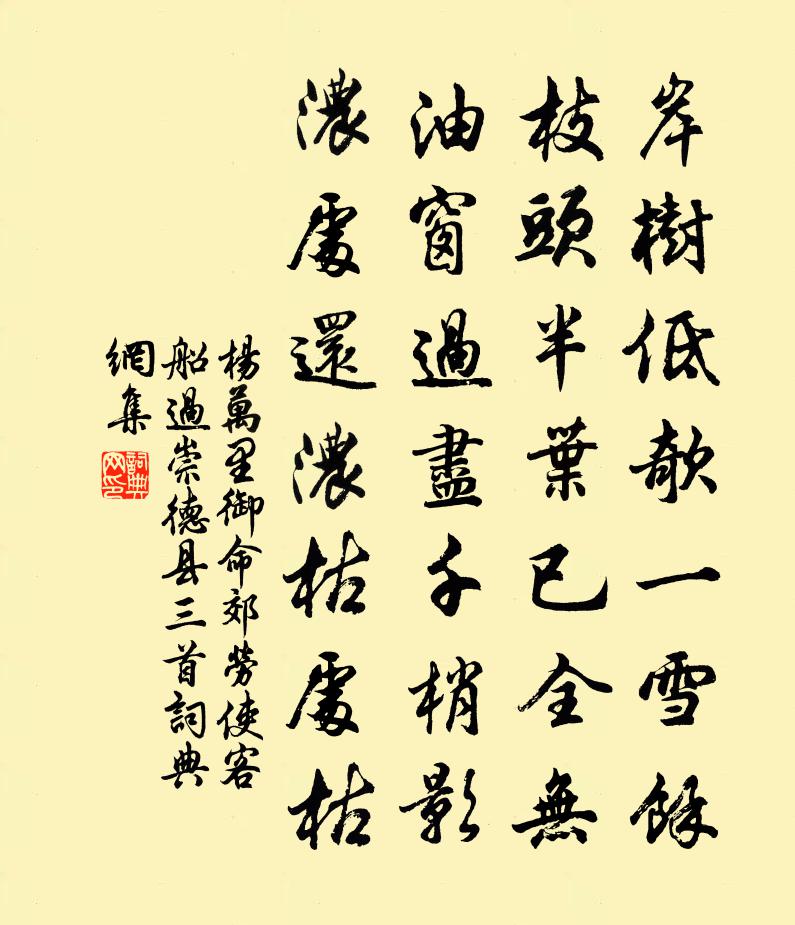 岸樹低欹一雪餘
枝頭半葉已全無
油窗過盡千梢影
濃處還濃枯處枯
楊萬里御命郊勞使客
船過崇德县三首詞典
網集
詞典
网印